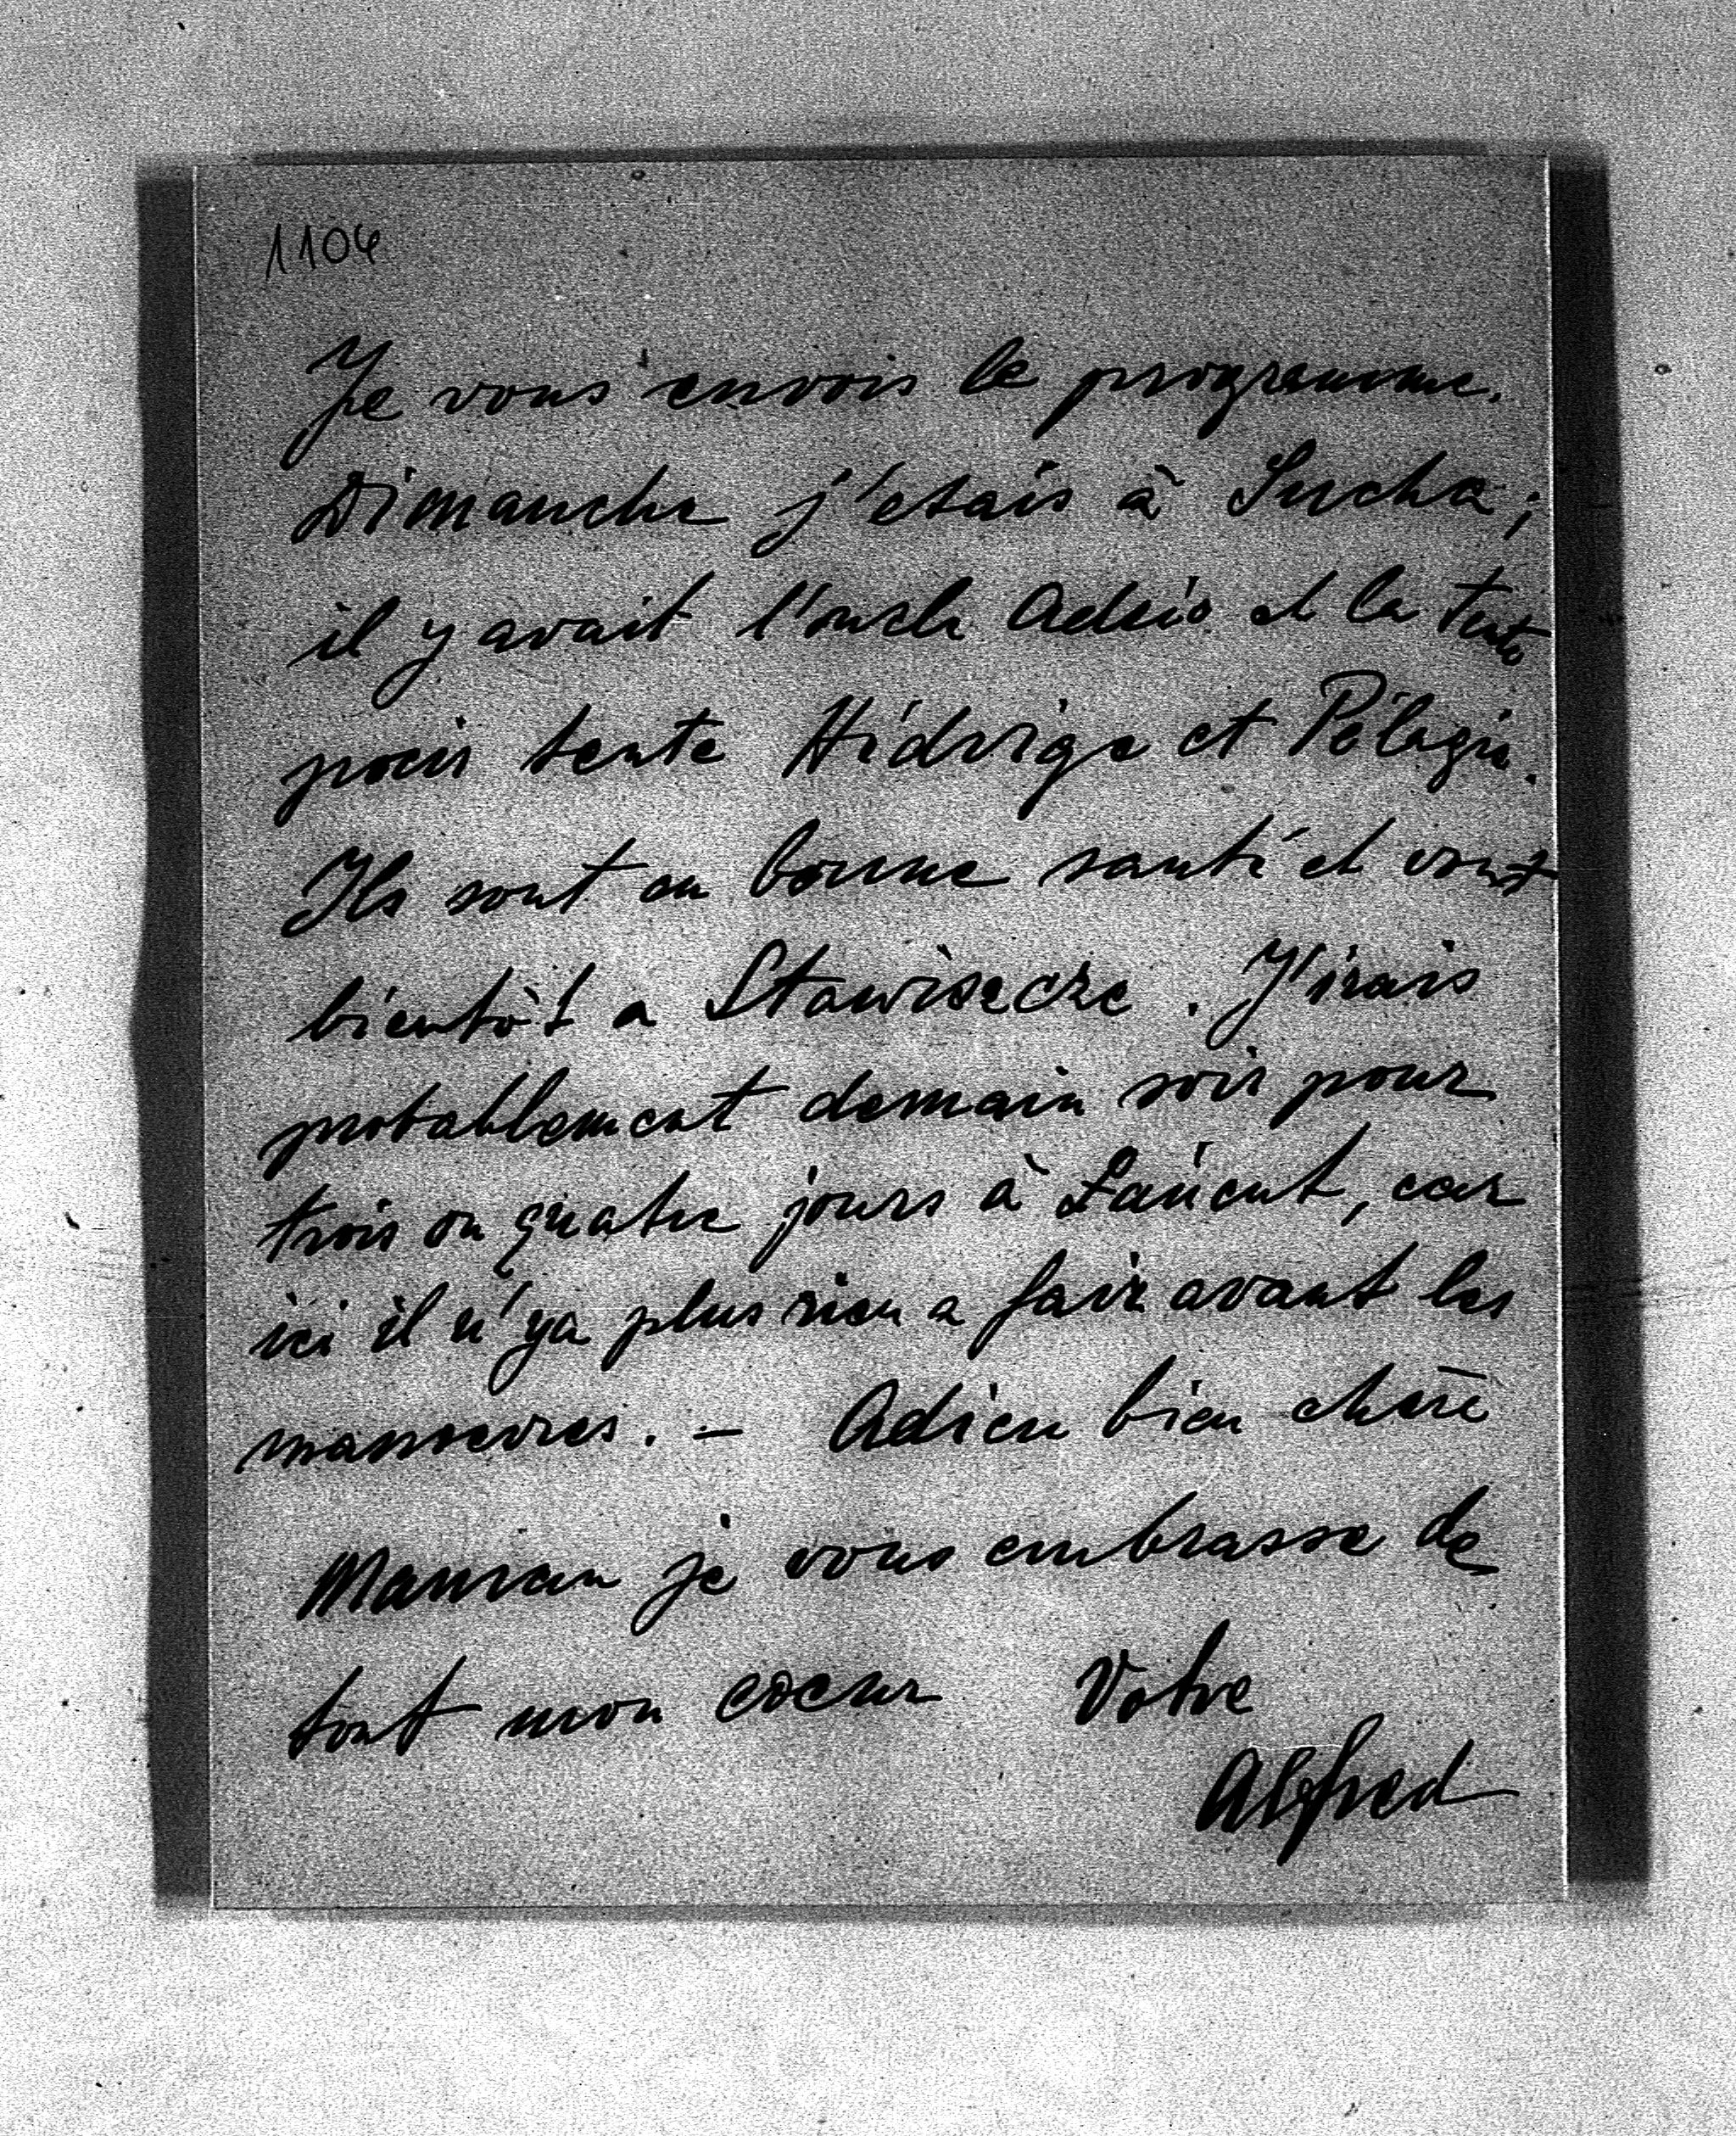 1106
Je vous envois le programme.
Dimanche j'etais à Sucha;
il y avait l'oncle Adzio et la tente
puis tente Hédvige et Pélagie.
Ils sont en bonne santé et vont
bientôt a Stawiszcze. J'irais
probablement demain soir pour
trois ou quatre jours à Łańcut, car
ici il n'ya plus rien a fair avant les
manoevres. – Adieu bien chère
Maman je vous embrasse de
tout mon coeur Votre
Alfred